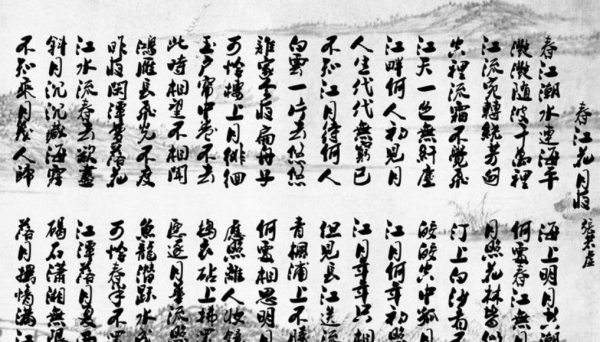 春江花月夜 張若虛
春江潮水連海平 海上明月共潮
隨波千萬裡 何處春江無月
江流宛轉繞芳甸 月照花林皆似
空裡流霜不覺飛 汀上白沙看不
江天一色無纖塵 皎皎空中孤月
江畔何人初見月 江月何年初照
人生代代無窮已 江月年年只相
不知江月待何人 但見長江送流
白雲一片去悠悠 青楓浦上不勝
誰家今夜扁舟子 何處相思明月
可憐樓上月徘徊 應照離人妝鏡
玉戶簾中卷不去 搗衣砧上拂
此時相望不相聞 願逐月華流照
鴻雁長飛光不度 魚龍潛躍水
昨夜閒潭夢落花 可憐春半不
江水流春去欲盡 江潭落月復西
斜月沉沉藏海霧 碣石瀟湘無限
不知乘月幾人歸 落月搖情滿江